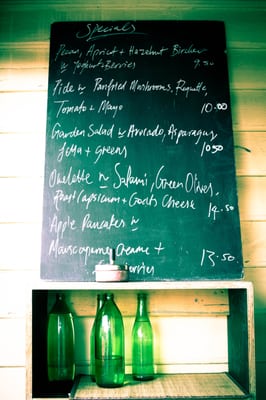 Specials
Pecan, Apricot + Hazelnut Bircher
w Yoghurt + Berries 9.50
Pide w Panfried Mushrooms, Roquette,
Tomato + Mayo 10.00
Garden Salad w Avocado, Asparagus,
Fetta + Greens 10.50
Omelette w Salami, Green Olives,
Roast Capsicum + Goats Cheese 14.50
Apple Pancakes w
Mascarpone Creame + 13.50